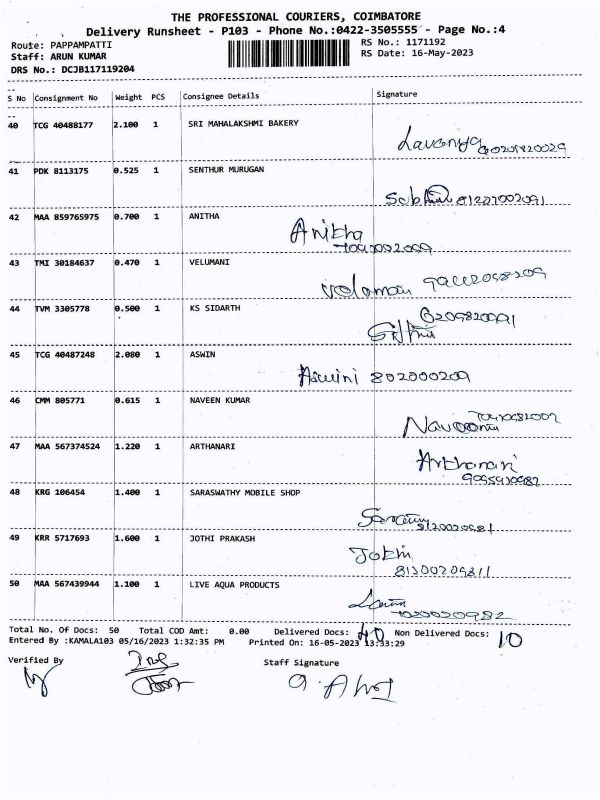 THE PROFESSIONAL COURIERS, COIMBATORE
Delivery Runsheet - P103 - Phone No.:0422-3505555 - Page No.:4
Route: PAPPAMPATTI RS No.: 1171192
Staff: ARUN KUMAR RS Date: 16-May-2023
DRS No.: DCJB117119204
S No Consignment No Weight PCS Consignee Details Signature
40 TCG 40488177 2.100 1 SRI MAHALAKSHMI BAKERY
Lavanya
41 PDK 8113175 0.525 1 SENTHUR MURUGAN
42 MAA 859765975 0.700 1 ANITHA
Anitha
43 TMI 30184637 0.470 1 VELUMANI
44 TVM 3305778 0.500 1 KS SIDARTH
6209820091
45 TCG 40487248 2.080 1 ASWIN
Aswini 802000209
46 CMM 805771 0.615 1 NAVEEN KUMAR
47 MAA 567374524 1.220 1 ARTHANARI
Arthanari
48 KRG 106454 1.400 1 SARASWATHY MOBILE SHOP
49 KRR 5717693 1.600 1 JOTHI PRAKASH
Jothi
50 MAA 567439944 1.100 1 LIVE AQUA PRODUCTS
Total No. Of Docs: 50 Total COD Amt: 0.00 Delivered Docs: 40 Non Delivered Docs: 10
Entered By :KAMALA103 05/16/2023 1:32:35 PM Printed On: 16-05-2023 13:33:29
Verified By Staff Signature